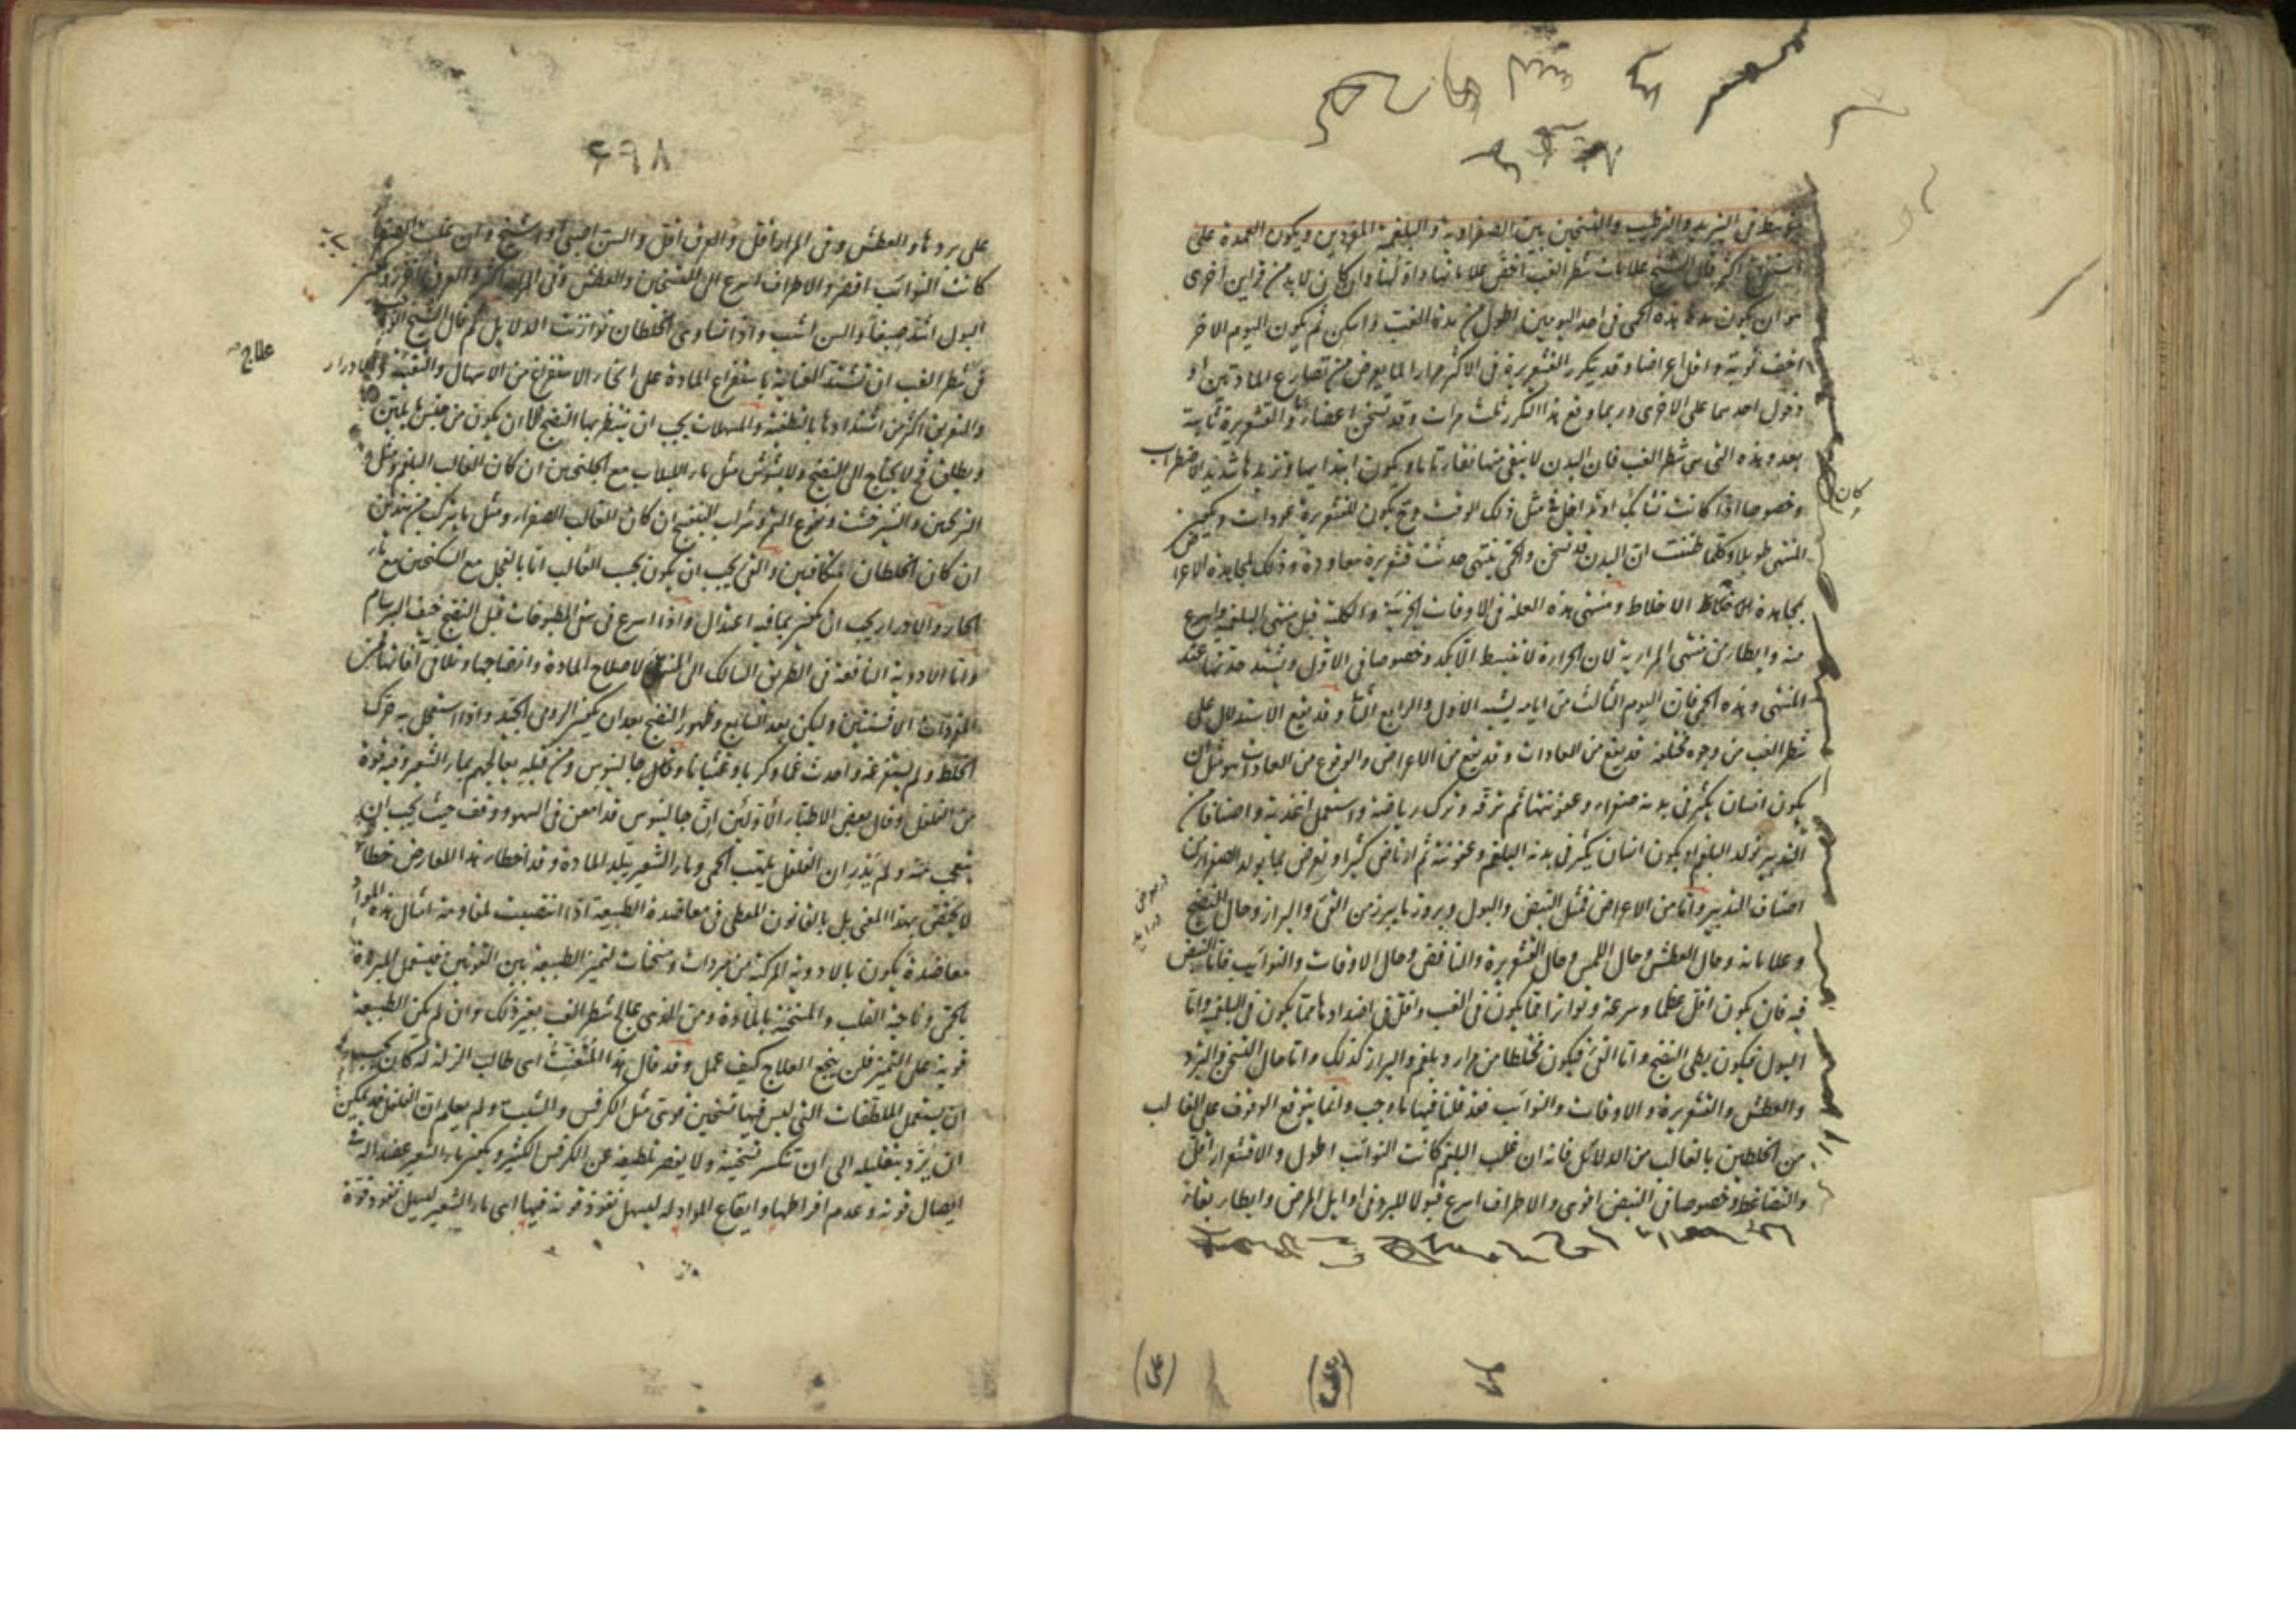 يتوسط في التبريد والترطيب والتسخين بين الصفراوية والبلغمية المفردين ويكون العمدة على
استفراغ أكثر قال الشيخ علامات شطر الغب أخص علاماتها وأولها وان كان لا بد من قراين أخرى
هو ان يكون مدة هذه الحمى في احد اليومين اطول من مدة الغب واسكن ثم يكون اليوم الآخر
اخف نوبة واقل اعراضا وقد يتكرر القشعريرة في الاكثر مرارا لما يعرض من تصارع المادتين أو
دخول احديهما على الاخرى وربما وقع هذا التكرر ثلث مرات وقد تسخن اعضاء والقشعريرة ثابتة
بعد وهذه التي هي شطر الغب فان البدن لا ينقى منها نقاء تاما ويكون ابتداءها وتزيدها شديد الاضطراب
وخصوصا اذا كانت تشابك او تداخل في مثل ذلك الوقت وح يكون للقشعريرة عودات ويكون
المنتهى طويلا وكلما ظننت ان البدن قد تسخن والحمى تنتهي حدثت قشعريرة معاودة وذلك لمجاهدة الاعراض
بمجاهدة الاخلاط ومنتهى هذه العلة في الاوقات الجزئية والكلية قبل منتهى البلغمية واسرع
منه وابطأ من منتهى المرارية لان الحرارة لا تنبسط الا بكد وخصوصا في الاول وتشتد حدتها عند
المنتهى وهذه الحمى فان اليوم الثالث من ايامه يشبه الاول والرابع الثاني وقد يقع الاستدلال على
شطر الغب من وجوه مختلفة قد يقع من العادات وقد يقع من الاعراض والوقوع من العادات هو مثل ان
يكون انسان يكثر في بدنه صفراء وعفونتها ثم ترفه وترك رياضة واستعمل اغذية واصنافا من
التدبير تولد البلغم او يكون انسان يكثر في بدنه البلغم وعفونته ثم ارتاض كثيرا وتعرض لما يولد الصفراء من
اصناف التدبير واما من الاعراض فمثل النبض والبول وبروز ما يبرز من القئ والبراز وحال النضج
وعلاماته وحال العطش وحال اللمس وحال القشعريرة والنافض وحال الاوقات والنوائب فاما النبض
فيه فان يكون اقل عظما وسرعة وتواترا مما يكون في الغب واقل في اضدادها مما يكون في البلغمية واما
البول فيكون بطى النضج واما القئ فيكون مختلطا من مرار وبلغم والبراز كذلك واما حال التسخن والبرد
والعطش والقشعريرة والاوقات والنوائب فقد قلنا فيها ما وجب وانما يتوقع الوقوف على الغالب
من الخلطين بالغالب من الدلائل فانه ان غلب البلغم كانت النوائب اطول والاقشعرار اقل
والتضاغط وخصوصا في النبض اقوى والاطراف اسرع قبولا للبرد في اوايل المرض وابطأ بقاء
كان
(على)
٤٩٨
على برودها والعطش وفي المرار اقل والعرق اقل والسن الصبى او اشيخ وان غلب الصفراء
كانت النوائب اقصر والاطراف اسرع الى التسخين والعطش وفي المرار اكثر والعرق اغزر ويكون
البول اشد صبغا والسن اشب واذا تساوى الخلطان توازنت الدلايل ثم قال الشيخ
في شطر الغب ان تشتد العناية باستفراغ المادة على انحاء الاستفراغ من الاسهال والتقيئة والادرار
والتعريق اكثر من اشتدادها بالتطفئة والمسهلات يجب ان ينتظر بها النضج الا ان يكون من جنس ما يلين
ويطلق فح لا يحتاج الى النضج ولا يشوش مثل ماء اللبلاب مع الجلنجبين ان كان الغالب البلغم ومثل
الترنجبين والشيرخشت وشراب البنفسج ان كان الغالب الصفراء ومثل ما يتركب من هذين
ان كان الخلطان متكافيين والقئ يجب ان يكون بحسب الغالب اما بالفجل مع السكنجبين مع ماء
الحار والادرار يجب ان يكون بما فيه اعتدال واذا اسرع في سقى المطبوخات قبل النضج خيف البرسام
واما الادوية النافعة في الطريق السالك الى المنتهى لاصلاح المادة وانضاجها وتلافى آفاتها فمن
المفردات الافسنتين وليكن بعد السابع وظهور النضج بعد ان يكون الرومى الجيد واذا استعمل به حرك
الخلط ولم يستفرغه واحدث غما وكربا وغثيانا وكان جالينوس ومن قبله يعالجهم بماء الشعير وفيه قوة
من الفلفل وقال بعض الاطباء الاولين ان جالينوس قد امعن في السهو ووقف حيث يجب ان
يتعجب منه ولم يدر ان الفلفل يلهب الحمى وماء الشعير يبلد المادة وقد اخطا هذا المعارض خطاء
لا يختص بهذا المعنى بل بالقانون المعطى في معاضدة الطبيعة اذا انتصبت لمقاومة امثال هذه المواد
معاضدة يكون بالادوية المركبة من مبردات ومسخنات لتميز الطبيعة بين القوتين فيستعمل المبردة
بالحمى وناحية القلب والمسخنة بالمادة ومن الذى عالج شطر الغب بغير ذلك وان لم يكن الطبيعة
قوية على التميز فلن ينجع العلاج كيف عمل وقد قال هذا المتعنت اى طالب الزلة له كان يجب
ان يستعمل الملطفات التى ليس فيها تسخين قوى مثل الكرفس والشبث ولم يعلم ان الفلفل قد يمكن
ان يرد بتقليله الى ان تنكسر تسخينه ولا يقصر تلطيفه عن الكرفس الكثير ويكون ماء الشعير عضدا له في
ايصال قوته وعدم افراطها وايقاع المواد له ليسهل نفوذ قوته فيها اى ماء الشعير ليسهل نفوذ قوة
علاج